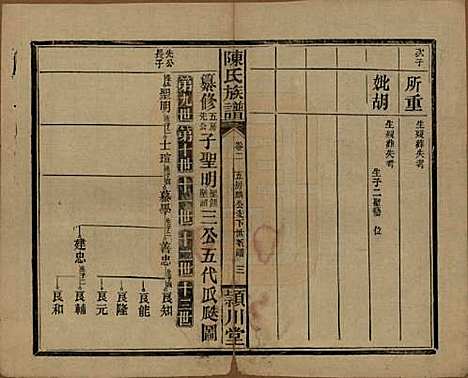 次子
所重
生歿葬失考
妣胡
生歿葬失考
生子二
位
陳氏族譜
卷二
五房
公支下世系圖
三
潁川堂
纂修五房先公子聖明
三公五代瓜瓞圖
第九世
第十世
十一世
十二世
十三世
先公長子
聖明
士瑄
慕學
善忠
良知
良能
良隆
良元
建忠
良輔
良和